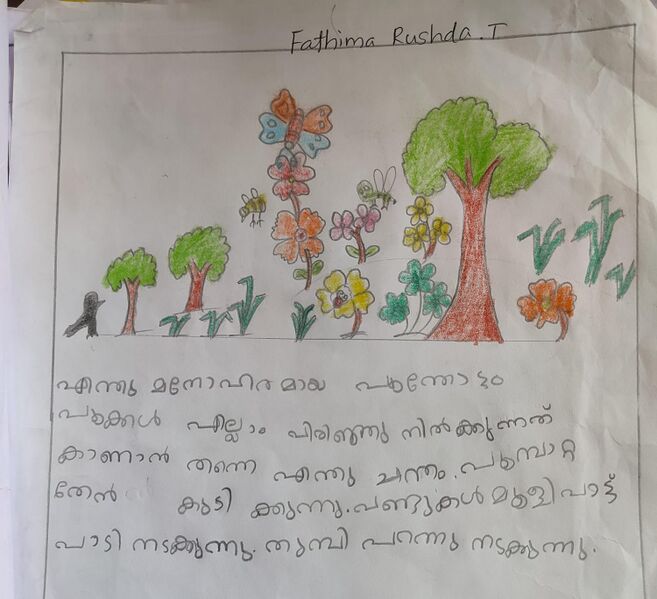 Fathima Rushda.T
എന്തു മനോഹരമായ പൂന്തോട്ടം
പൂക്കൾ എല്ലാം വിരിഞ്ഞു നിൽക്കുന്നത്
കാണാൻ തന്നെ എന്തു ചന്തം. പൂമ്പാറ്റ
തേൻ കുടിക്കുന്നു. വണ്ടുകൾ മൂളിപാട്ട്
പാടി നടക്കുന്നു. തുമ്പി പറന്നു നടക്കുന്നു.